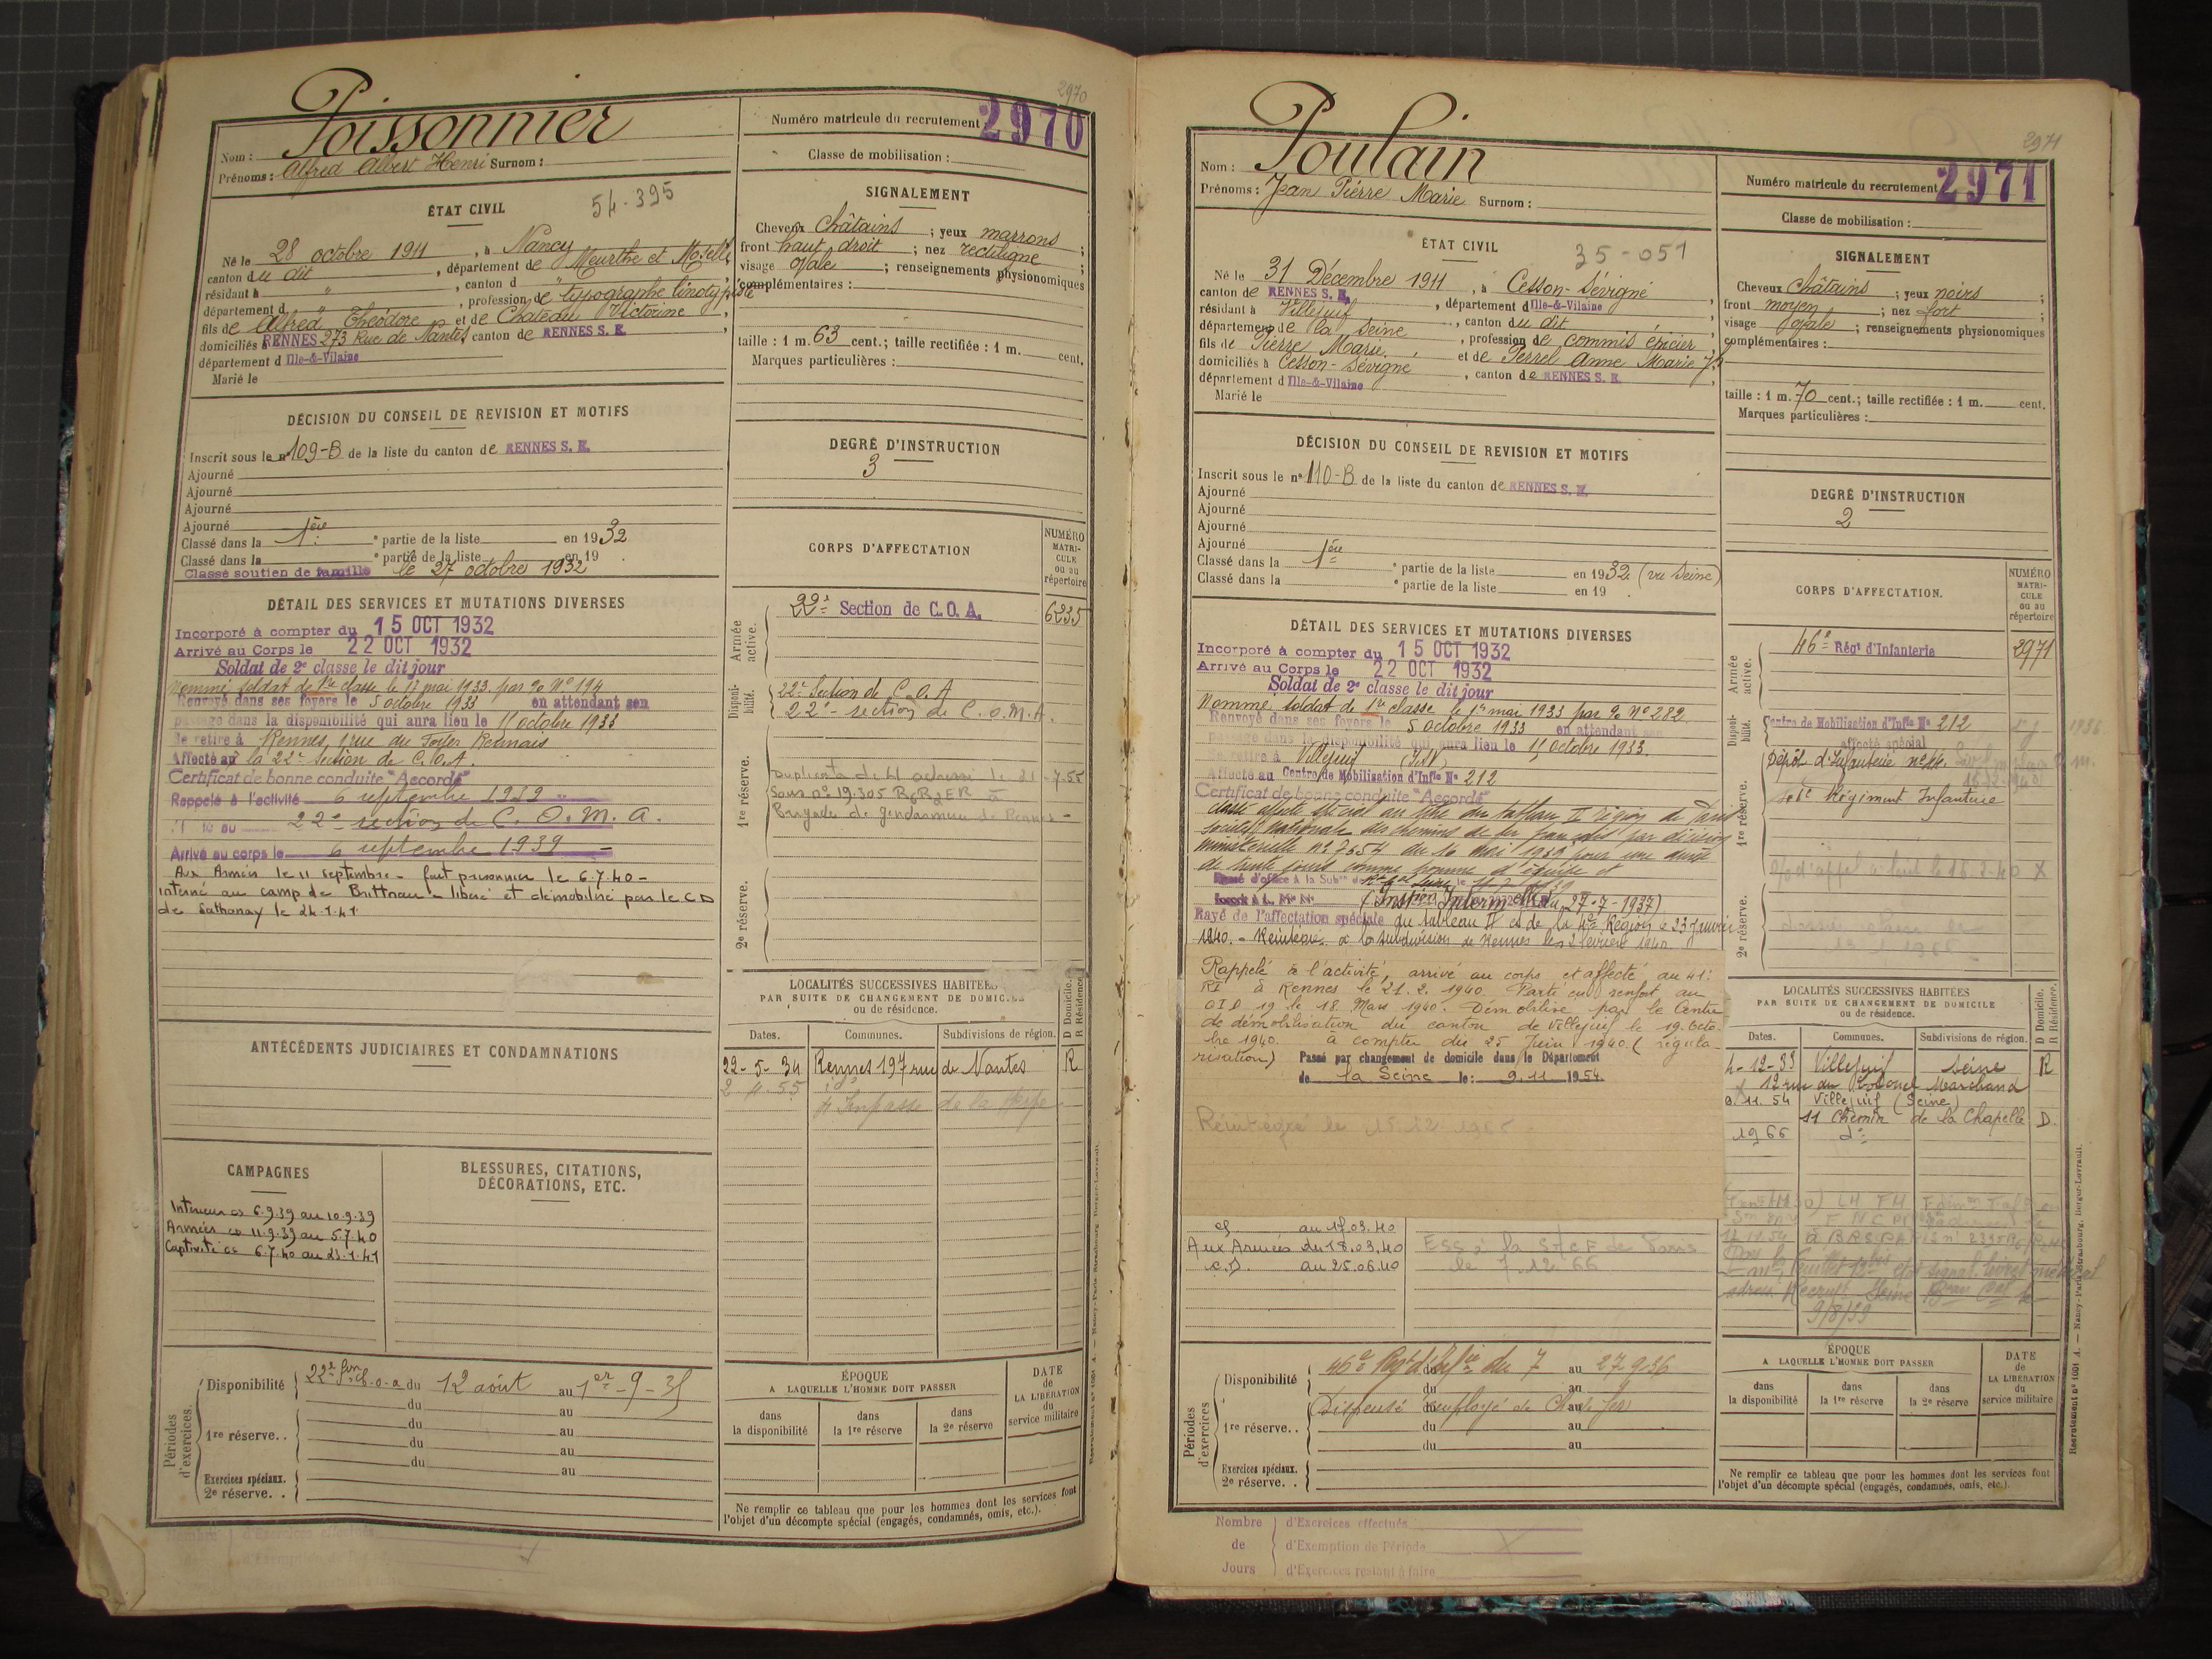 2970
Nom : Poissonnier
Prénoms : Alfred Albert Henri Surnom :
Numéro matricule du recrutement 2970
Classe de mobilisation :
ÉTAT CIVIL
54-395
Né le 28 octobre 1911, à Nancy
canton du dit, département de Meurthe et Moselle
résidant à ", canton d
département d ", profession de typographe linotypiste
fils de Alfred Théodore et de Chateau Victorine,
domiciliés RENNES 273 Rue de Nantes canton de RENNES S. E.
département d Ille-&-Vilaine
Marié le
SIGNALEMENT
Cheveux châtains ; yeux marrons ;
front haut droit ; nez rectiligne ;
visage ovale ; renseignements physionomiques
complémentaires :
taille : 1 m. 63 cent.; taille rectifiée : 1 m. cent.
Marques particulières :
DÉCISION DU CONSEIL DE REVISION ET MOTIFS
Inscrit sous le n° 109-B de la liste du canton de RENNES S. E.
Ajourné
Ajourné
Ajourné
Ajourné
Classé dans la 1ère partie de la liste en 1932
Classé dans la e partie de la liste en 19 .
Classé soutien de famille le 27 octobre 1932
DEGRÉ D'INSTRUCTION
3
CORPS D'AFFECTATION
NUMÉRO MATRI-CULE ou au répertoire
Armée active.
22e Section de C.O.A. 6235
Disponi-bilité.
22e Section de C.O.A
22e section de C.O.M.A.
1re réserve.
Sous n° 19.305
Brigade de Gendarmerie de Rennes
2e réserve.
DÉTAIL DES SERVICES ET MUTATIONS DIVERSES
Incorporé à compter du 15 OCT 1932
Arrivé au Corps le 22 OCT 1932
Soldat de 2e classe le dit jour
Nommé soldat de 1re classe le 17 mai 1933. par 90 N° 194
Renvoyé dans ses foyers le 5 octobre 1933 en attendant son
passage dans la disponibilité qui aura lieu le 15 octobre 1933
Se retire à Rennes, 1 rue du Foyer Rennais
Affecté au la 22e Section de C.O.A.
Certificat de bonne conduite "Accordé"
Rappelé à l'activité 6 septembre 1939
22e section de C. O. M. A.
Arrivé au corps le 6 septembre 1939
Aux Armées le 11 septembre - fait prisonnier le 6.7.40 -
interné au camp de - libéré et démobilisé par le C D
de Sathonay le 24.1.41
LOCALITÉS SUCCESSIVES HABITÉES
PAR SUITE DE CHANGEMENT DE DOMICILE
ou de résidence.
D Domicile. R Résidence.
Dates. Communes. Subdivisions de région.
22-5-34 Rennes 197 rue de Nantes R
2 4.55
Impasse de la
ANTÉCÉDENTS JUDICIAIRES ET CONDAMNATIONS
CAMPAGNES
BLESSURES, CITATIONS,
DÉCORATIONS, ETC.
Intérieur cs 6.9.39 au 10.9.39
Armées cs 11.9.39 au 5.7.40
Captivité cs 6.7.40 au 23.1.41
Périodes d'exercices.
Disponibilité 22e Son C.O.A du 12 août au 1er-9-35
du au
du au
1re réserve. . du au
du au
Exercices spéciaux.
2e réserve. .
ÉPOQUE
A LAQUELLE L'HOMME DOIT PASSER
dans la disponibilité
dans la 1re réserve
dans la 2e réserve
DATE de LA LIBÉRATION du service militaire
Ne remplir ce tableau que pour les hommes dont les services font
l'objet d'un décompte spécial (engagés, condamnés, omis, etc.).
2971
Nom : Poulain
Prénoms : Jean Pierre Marie Surnom :
Numéro matricule du recrutement 2971
Classe de mobilisation :
ÉTAT CIVIL
35-051
Né le 31 Décembre 1911, à Cesson-Sévigné,
canton de RENNES S. E., département d Ille-&-Vilaine
résidant à Villejuif, canton du dit,
département de la Seine, profession de commis épicier
fils de Pierre Marie, et de Perrel Anne Marie Jh
domiciliés à Cesson-Sévigné, canton de RENNES S. E.,
département d Ille-&-Vilaine
Marié le
SIGNALEMENT
Cheveux châtains ; yeux noirs ;
front moyen ; nez fort ;
visage ovale ; renseignements physionomiques
complémentaires :
taille : 1 m. 70 cent.; taille rectifiée : 1 m. cent.
Marques particulières :
DÉCISION DU CONSEIL DE REVISION ET MOTIFS
Inscrit sous le n° 110-B de la liste du canton de RENNES S. E.
Ajourné
Ajourné
Ajourné
Ajourné
Classé dans la 1ère partie de la liste en 1932 (vu Seine)
Classé dans la e partie de la liste en 19 .
DEGRÉ D'INSTRUCTION
2
CORPS D'AFFECTATION.
NUMÉRO MATRI-CULE ou au répertoire
Armée active.
46e Régt d'Infanterie 2971
Disponi-bilité.
Centre de Mobilisation d'Infie N° 212
affecté spécial
1re réserve.
Dépôt d'Infanterie n° 44
Régiment Infanterie
2e réserve.
DÉTAIL DES SERVICES ET MUTATIONS DIVERSES
Incorporé à compter du 15 OCT 1932
Arrivé au Corps le 22 OCT 1932
Soldat de 2e classe le dit jour
Nommé soldat de 1re classe le 1er mai 1933 par 90 N° 282
Renvoyé dans ses foyers le 5 octobre 1933 en attendant son
passage dans la disponibilité qui aura lieu le 15 octobre 1933.
Se retire à Villejuif
Affecté au Centre de Mobilisation d'Infie N° 212
Certificat de bonne conduite "Accordé"
Classé affecté spécial au titre du tableau II région de Paris
société nationale des chemins de fer français par décision
ministérielle n° 2.7654 du 16 Mai 1939 pour une durée
de trente jours comme homme d'équipe
(Inston Intermelle du 27-7-1937)
Rayé de l'affectation spéciale du tableau II de la Région le 23 Janvier
1940. - Réintégré à la subdivision de Rennes le 2 février 1940
Rappelé à l'activité, arrivé au corps et affecté au 41e
RI à Rennes le 21.2.1940. Parti en renfort au
OID 19 le 18 Mars 1940. Démobilisé par le Centre
de démobilisation du canton de Villejuif le 19 octo-
bre 1940. à compter du 25 Juin 1940. (régula-
risation) Passé par changement de domicile dans le Département
de la Seine le : 9.11 1954
Réintégré le 15.12.1966
LOCALITÉS SUCCESSIVES HABITÉES
PAR SUITE DE CHANGEMENT DE DOMICILE
ou de résidence.
D Domicile. R Résidence.
Dates. Communes. Subdivisions de région.
4-12-33 Villejuif Seine R
12 rue du Colonel Marchand
9.11.54 Villejuif (Seine)
11 Chemin de la Chapelle D.
1966 do
9/8/39
au 17.03.40
Aux Armées du 18.03.40
C.D. au 25.06.40
ESS à la SNCF de Paris
le 7.12.66
Périodes d'exercices
Disponibilité 46e Régt d'Infie du 7 au 27.9.36
du au
Dispensé employé de Ch. de fer
1re réserve. . du au
du au
Exercices spéciaux.
2e réserve. .
ÉPOQUE
A LAQUELLE L'HOMME DOIT PASSER
dans la disponibilité
dans la 1re réserve
dans la 2e réserve
DATE de LA LIBÉRATION du service militaire
Ne remplir ce tableau que pour les hommes dont les services font
l'objet d'un décompte spécial (engagés, condamnés, omis, etc.).
Recrutement n° 1001 A. — Nancy-Paris-Strasbourg, Berger-Levrault.
Nombre de Jours
d'Exercices effectués
d'Exemption de Période
d'Exercices restant à faire